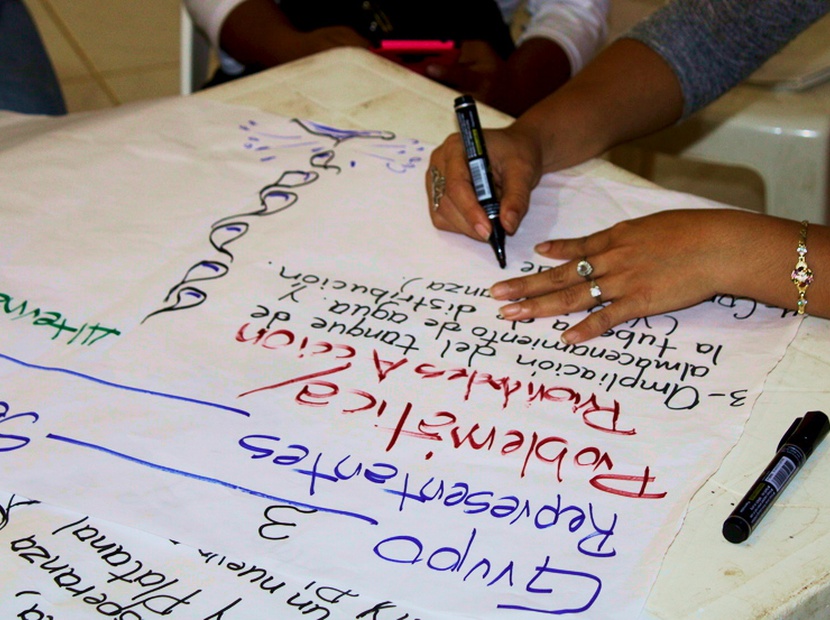 Grupo 3
Representantes
Problemática/
Prioridades Acción
3- Ampliación del tanque de
almacenamiento de agua. y
la tubería de distribución.
de
Alterna
So
un nuev
y Platanal
speranza